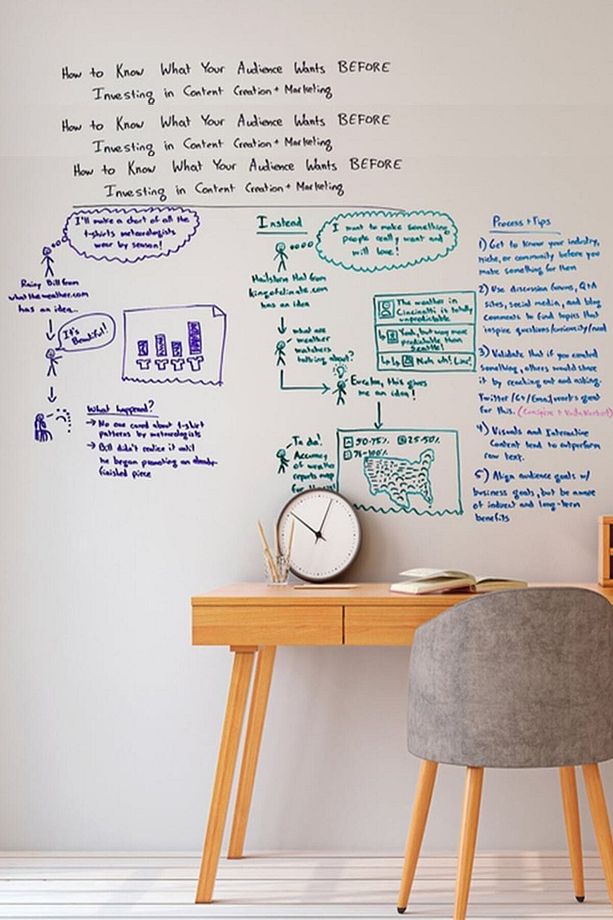 How to Know What Your Audience Wants BEFORE
Investing in Content Creation + Marketing
How to Know What Your Audience Wants BEFORE
Investing in Content Creation + Marketing
How to Know What Your Audience Wants BEFORE
Investing in Content Creation + Marketing
I'll make a chart of all the
t-shirts meteorologists
wear by season!
Rainy Bill from
whattheweather.com
has an idea...
It's
Beautiful!
What happened?
→ No one cared about t-shirt
patterns by meteorologists
→ Bill didn't realize it until
he began promoting an already-
finished piece
Instead
I want to make something
people really want and
will love!
Hailstorm Hal from
kingofclimate.com
has an idea
what are
weather
watchers
talking about?
The weather in
Cincinatti is totally
unpredictable
Yeah, but way more
predictable than
Seattle!
Nuh uh! Line!
Eureka, this gives
me an idea!
To do!
Accuracy
of weather
reports map
50-75%
25-50%
76-100%
Process + Tips
1) Get to know your industry,
niche, or community before you
make something for them
2) Use discussion forums, Q+A
sites, social media, and blog
comments to find topics that
inspire questions/curiosity/need
3) Validate that if you created
something, others would share
it by reaching out and asking.
Twitter/G+/Email work great
for this.
4) Visuals and Interactive
Content tend to outperform
raw text.
5) Align audience goals w/
business goals, but be aware
of indirect and long-term
benefits